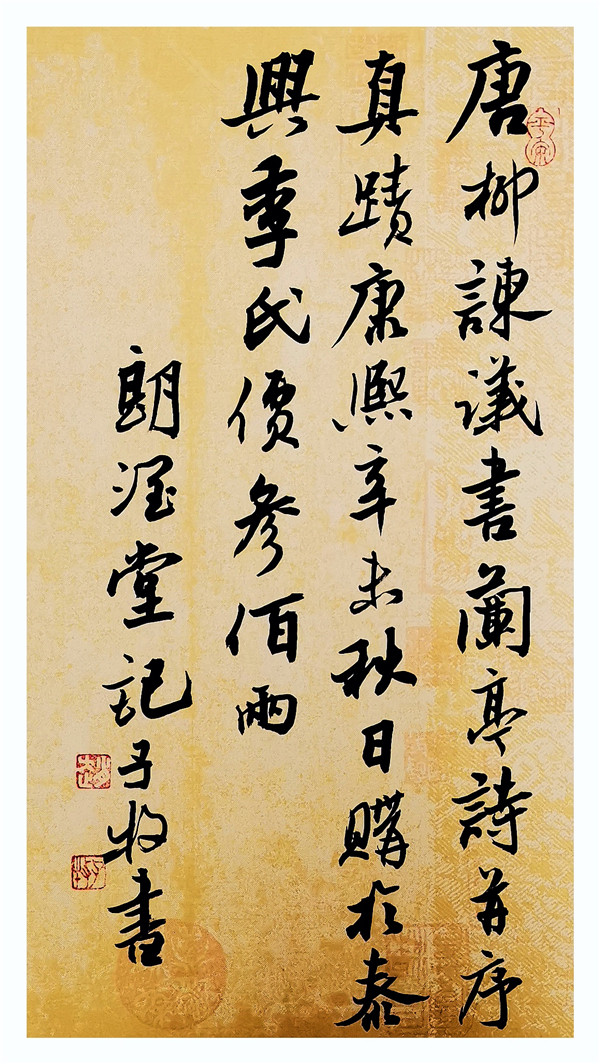 平安
唐柳諫議書蘭亭詩并序
真蹟康熙辛未秋日購於泰
興季氏價參佰兩
朗堂記子牧書